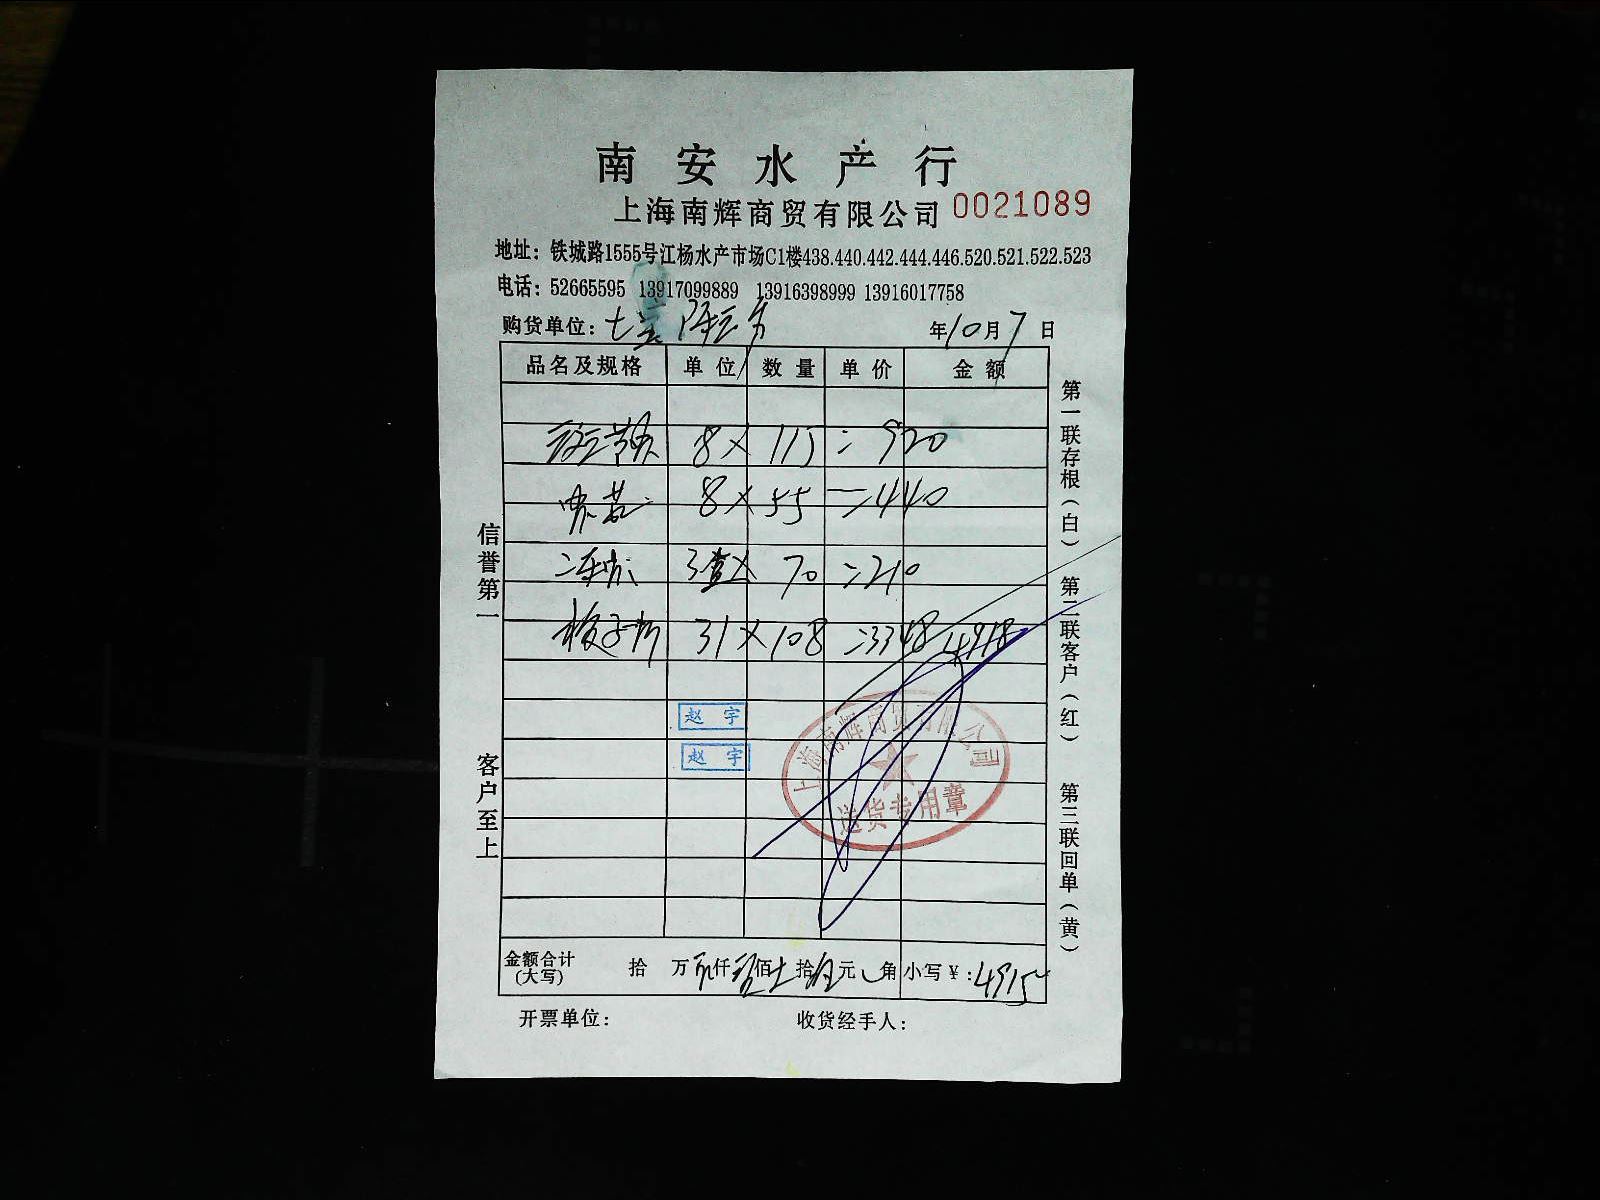 南安水产行
上海南辉商贸有限公司 0021089
地址：铁城路1555号江杨水产市场C1楼438.440.442.444.446.520.521.522.523
电话：52665595 13917099889 13916398999 13916017758
购货单位：七宝
年10月7日
品名及规格 单位 数量 单价 金额
8×115=920
8×55=440
3盒×70=210
31×108=3348 4918
赵宇
赵宇
上海南辉商贸有限公司
送货专用章
金额合计(大写) 拾 万 仟 佰 拾 元 角 小写￥：4915
开票单位： 收货经手人：
信誉第一 客户至上
第一联存根（白） 第二联客户（红） 第三联回单（黄）